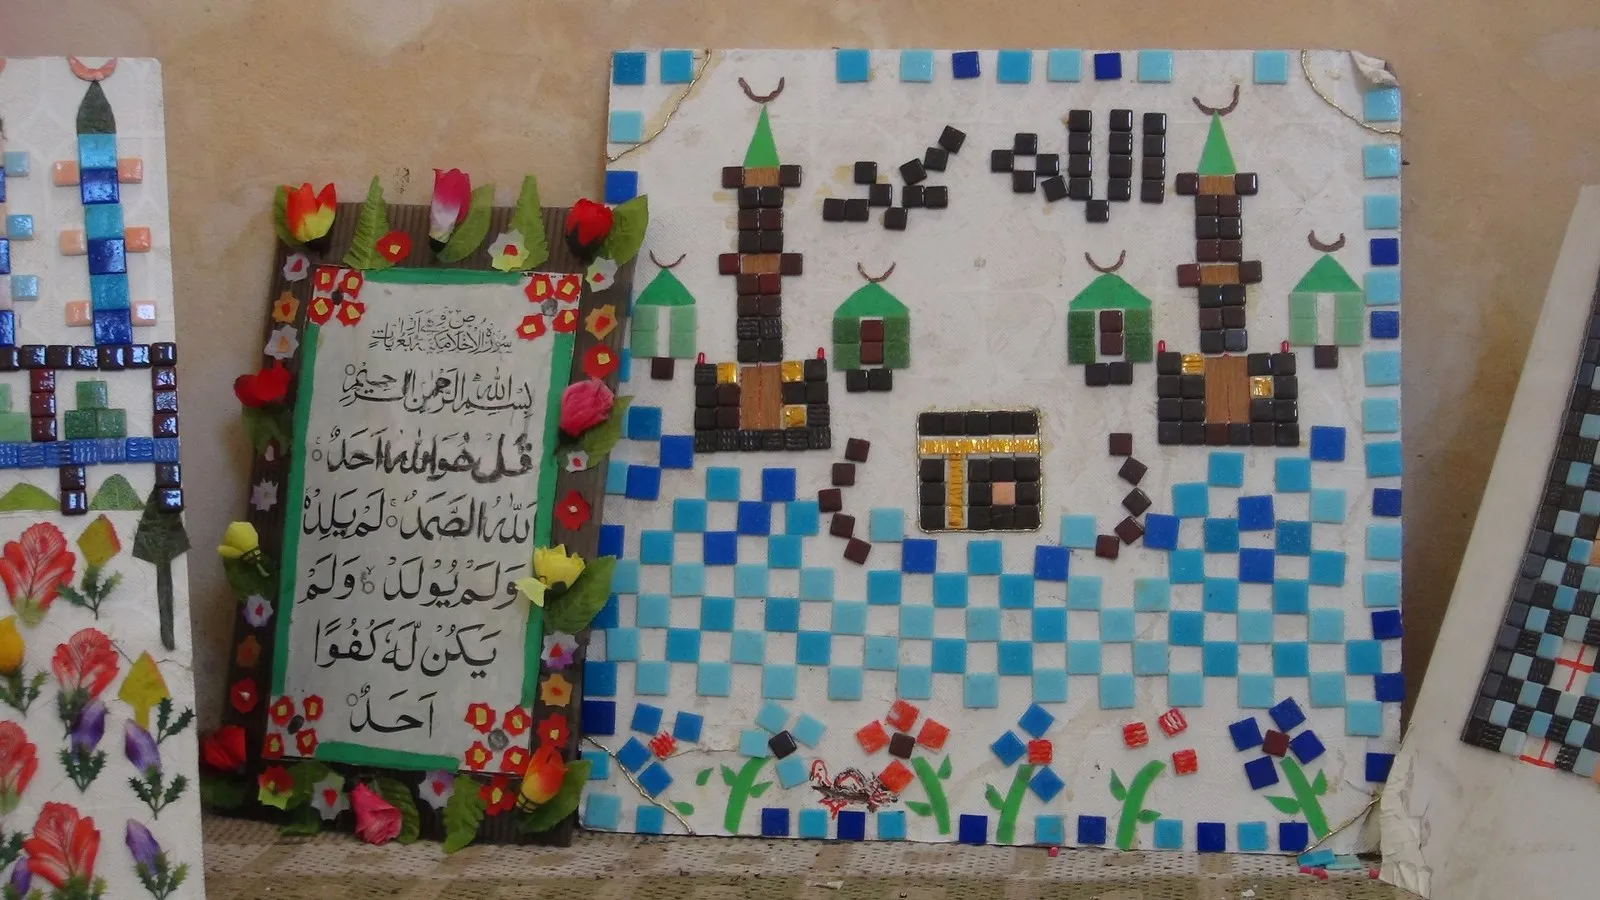 سورة الاخلاص مكية
بسم الله الرحمن الرحيم
قل هو الله احد
الله الصمد لم يلد
ولم يولد ولم
يكن له كفوا
احد
الله محمد